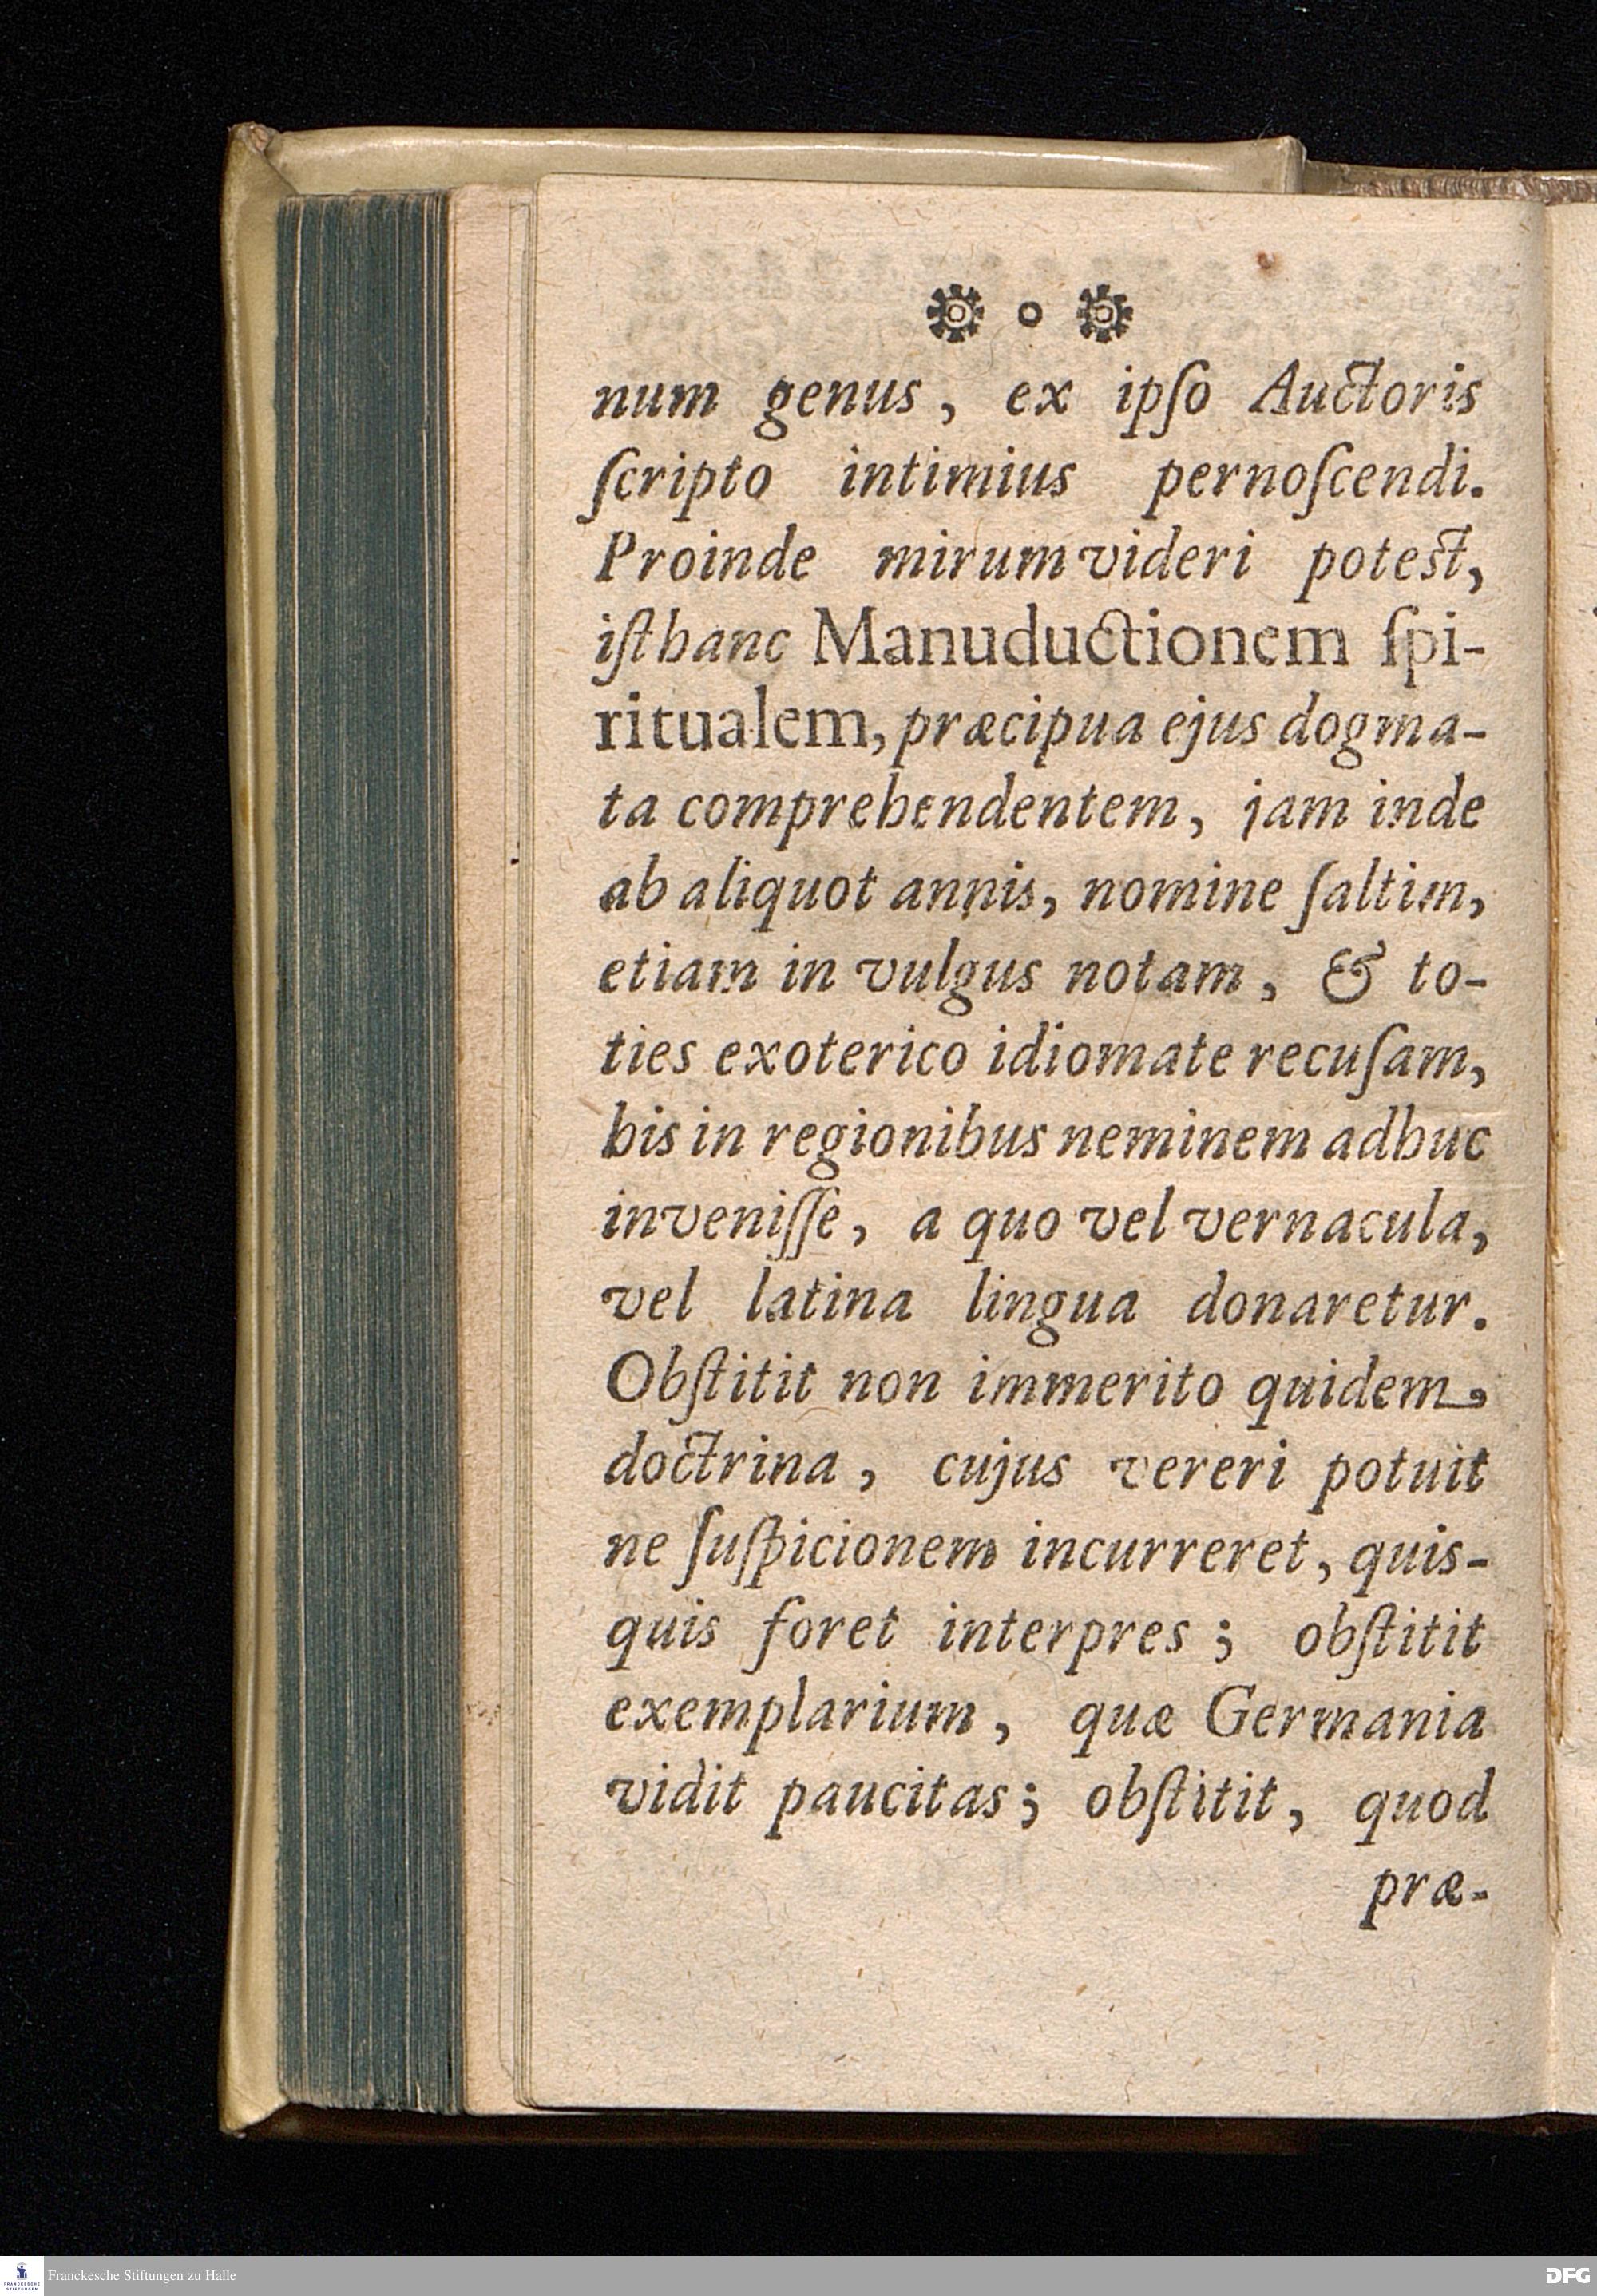 num genus, ex ipſo Auctoris
ſcripto intimius pernoſcendi.
Proinde mirum videri potest,
iſthanc Manuductionem ſpi-
ritualem, præcipua ejus dogma-
ta comprehendentem, jam inde
ab aliquot annis, nomine ſaltim,
etiam in vulgus notam, & to-
ties exoterico idiomate recuſam,
his in regionibus neminem adhuc
inveniſſe, a quo vel vernacula,
vel latina lingua donaretur.
Obſtitit non immerito quidem,
doctrina, cujus vereri potuit
ne ſuſpicionem incurreret, quis-
quis foret interpres; obſtitit
exemplarium, quæ Germania
vidit paucitas; obſtitit, quod
præ-
Franckesche Stiftungen zu Halle
DFG